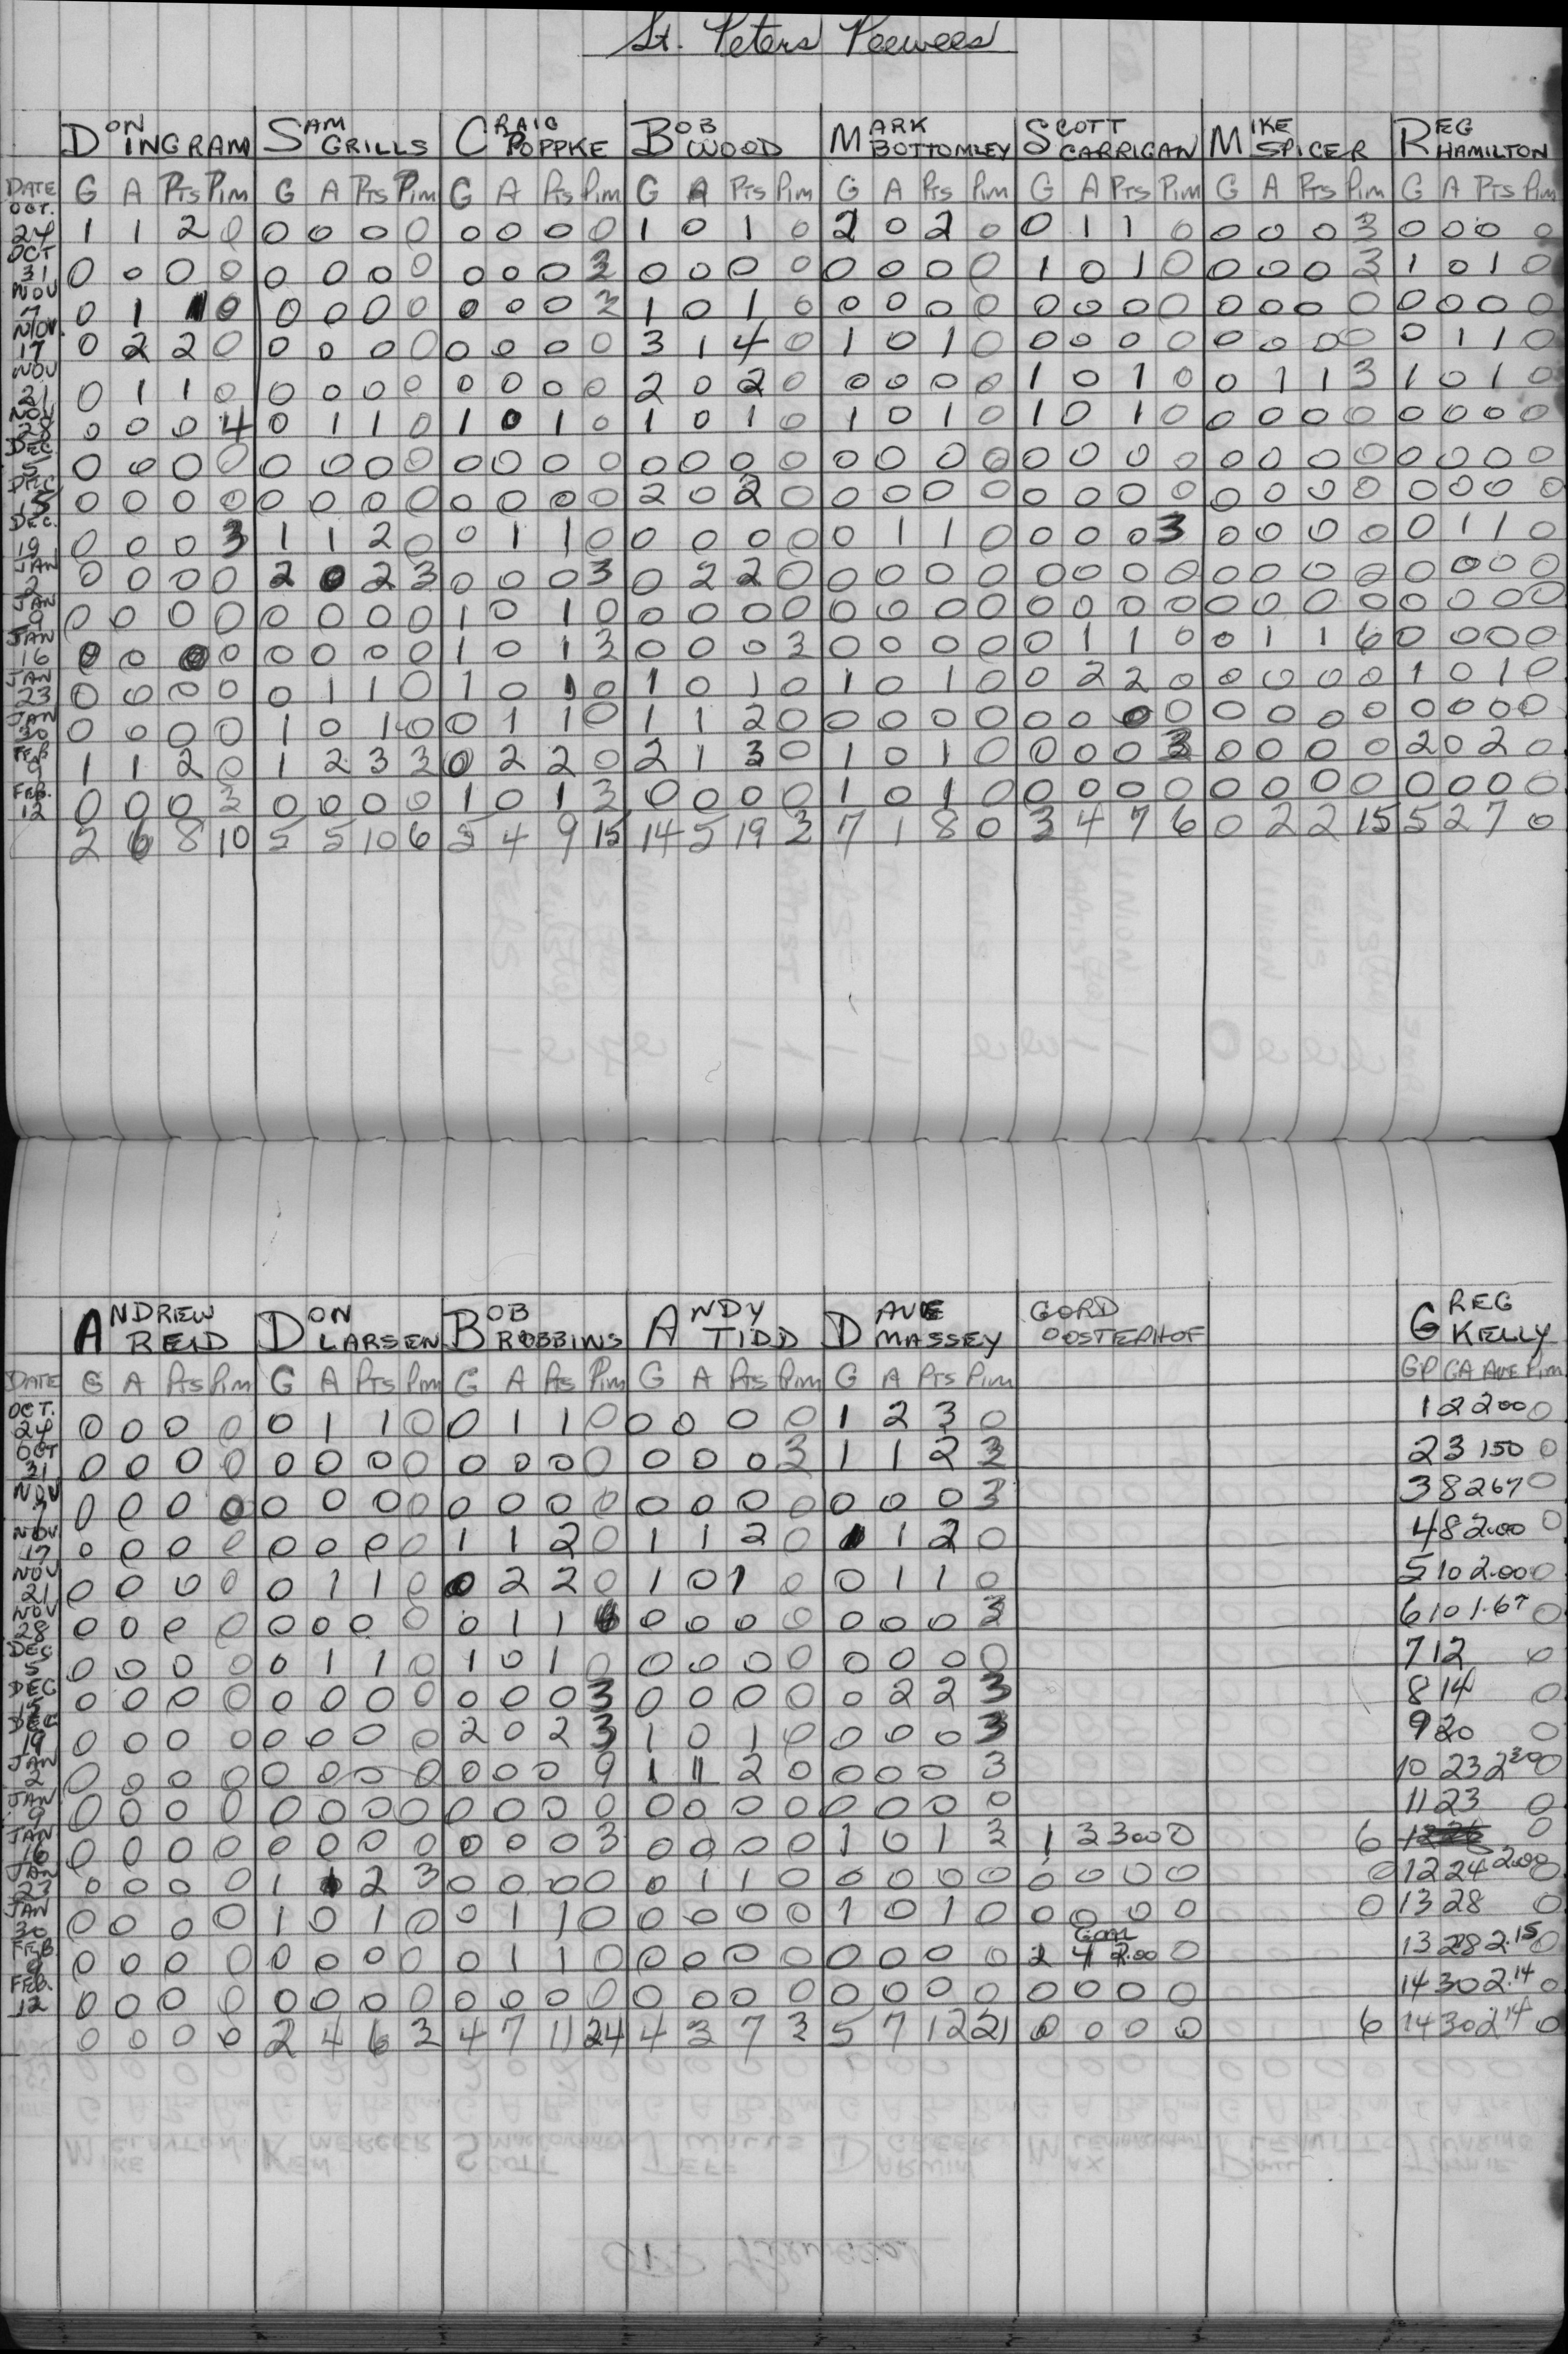 St. Peters Peewees
DON INGRAM SAM GRILLS CRAIG POPPKE BOB WOOD MARK BOTTOMLEY SCOTT CARRIGAN MIKE SPICER REG HAMILTON
DATE G A Pts Pim G A Pts Pim G A Pts Pim G A Pts Pim G A Pts Pim G A Pts Pim G A Pts Pim G A Pts Pim
OCT. 24 1 1 2 0 0 0 0 0 0 0 0 0 1 0 1 0 2 0 2 0 0 1 1 0 0 0 0 3 0 0 0 0
OCT 31 0 0 0 0 0 0 0 0 0 0 0 3 0 0 0 0 0 0 0 0 1 0 1 0 0 0 0 3 1 0 1 0
NOV 7 0 1 1 0 0 0 0 0 0 0 0 3 1 0 1 0 0 0 0 0 0 0 0 0 0 0 0 0 0 0 0 0
NOV. 17 0 2 2 0 0 0 0 0 0 0 0 0 3 1 4 0 1 0 1 0 0 0 0 0 0 0 0 0 0 1 1 0
NOV 21 0 1 1 0 0 0 0 0 0 0 0 0 2 0 2 0 0 0 0 0 1 0 1 0 0 1 1 3 1 0 1 0
NOV 28 0 0 0 4 0 1 1 0 1 0 1 0 1 0 1 0 1 0 1 0 1 0 1 0 0 0 0 0 0 0 0 0
DEC. 5 0 0 0 0 0 0 0 0 0 0 0 0 0 0 0 0 0 0 0 0 0 0 0 0 0 0 0 0 0 0 0 0
DEC 15 0 0 0 0 0 0 0 0 0 0 0 0 2 0 2 0 0 0 0 0 0 0 0 0 0 0 0 0 0 0 0 0
DEC. 19 0 0 0 3 1 1 2 0 0 1 1 0 0 0 0 0 0 1 1 0 0 0 0 3 0 0 0 0 0 1 1 0
JAN 2 0 0 0 0 2 0 2 3 0 0 0 3 0 2 2 0 0 0 0 0 0 0 0 0 0 0 0 0 0 0 0 0
JAN 9 0 0 0 0 0 0 0 0 1 0 1 0 0 0 0 0 0 0 0 0 0 0 0 0 0 0 0 0 0 0 0 0
JAN 16 0 0 0 0 0 0 0 0 1 0 1 3 0 0 0 3 0 0 0 0 0 1 1 0 0 1 1 6 0 0 0 0
JAN 23 0 0 0 0 0 1 1 0 1 0 1 0 1 0 1 0 1 0 1 0 0 2 2 0 0 0 0 0 1 0 1 0
JAN 30 0 0 0 0 1 0 1 0 0 1 1 0 1 1 2 0 0 0 0 0 0 0 0 0 0 0 0 0 0 0 0 0
FEB 9 1 1 2 0 1 2 3 3 0 2 2 0 2 1 3 0 1 0 1 0 0 0 0 3 0 0 0 0 2 0 2 0
FEB. 12 0 0 0 3 0 0 0 0 1 0 1 3 0 0 0 0 1 0 1 0 0 0 0 0 0 0 0 0 0 0 0 0
2 6 8 10 5 5 10 6 5 4 9 15 14 5 19 3 7 1 8 0 3 4 7 6 0 2 2 15 5 2 7 0
ANDREW REID DON LARSEN BOB ROBBINS ANDY TIDD DAVE MASSEY GORD OOSTERHOF GREG KELLY
DATE G A Pts Pim G A Pts Pim G A Pts Pim G A Pts Pim G A Pts Pim GP GA AVE Pim
OCT. 24 0 0 0 0 0 1 1 0 0 1 1 0 0 0 0 0 1 2 3 0 1 2 2.00 0
OCT 31 0 0 0 0 0 0 0 0 0 0 0 0 0 0 0 3 1 1 2 3 2 3 150 0
NOV 7 0 0 0 0 0 0 0 0 0 0 0 0 0 0 0 0 0 0 0 3 3 8 267 0
NOV 17 0 0 0 0 0 0 0 0 1 1 2 0 1 1 2 0 1 1 2 0 4 8 2.00 0
NOV 21 0 0 0 0 0 1 1 0 0 2 2 0 1 0 1 0 0 1 1 0 5 10 2.00 0
NOV 28 0 0 0 0 0 0 0 0 0 1 1 6 0 0 0 0 0 0 0 3 6 10 1.67 0
DEC 5 0 0 0 0 0 1 1 0 1 0 1 0 0 0 0 0 0 0 0 0 7 12 0
DEC 15 0 0 0 0 0 0 0 0 0 0 0 3 0 0 0 0 0 2 2 3 8 14 0
DEC 19 0 0 0 0 0 0 0 0 2 0 2 3 1 0 1 0 0 0 0 3 9 20 0
JAN 2 0 0 0 0 0 0 0 0 0 0 0 9 1 1 2 0 0 0 0 3 10 23 2.30 0
JAN 9 0 0 0 0 0 0 0 0 0 0 0 0 0 0 0 0 0 0 0 0 11 23 0
JAN 16 0 0 0 0 0 0 0 0 0 0 0 3 0 0 0 0 1 0 1 3 1 3 3.00 0 6 0
JAN 23 0 0 0 0 1 1 2 3 0 0 0 0 0 1 1 0 0 0 0 0 0 0 0 0 0 12 24 2.00 0
JAN 30 0 0 0 0 1 0 1 0 0 1 1 0 0 0 0 0 1 0 1 0 0 0 0 0 0 13 28 0
FEB. 9 0 0 0 0 0 0 0 0 0 1 1 0 0 0 0 0 0 0 0 0 2 4 2.00 0 13 28 2.15 0
FEB. 12 0 0 0 0 0 0 0 0 0 0 0 0 0 0 0 0 0 0 0 0 0 0 0 0 14 30 2.14 0
0 0 0 0 2 4 6 3 4 7 11 24 4 3 7 3 5 7 12 21 0 0 0 0 6 14 30 2.14 0